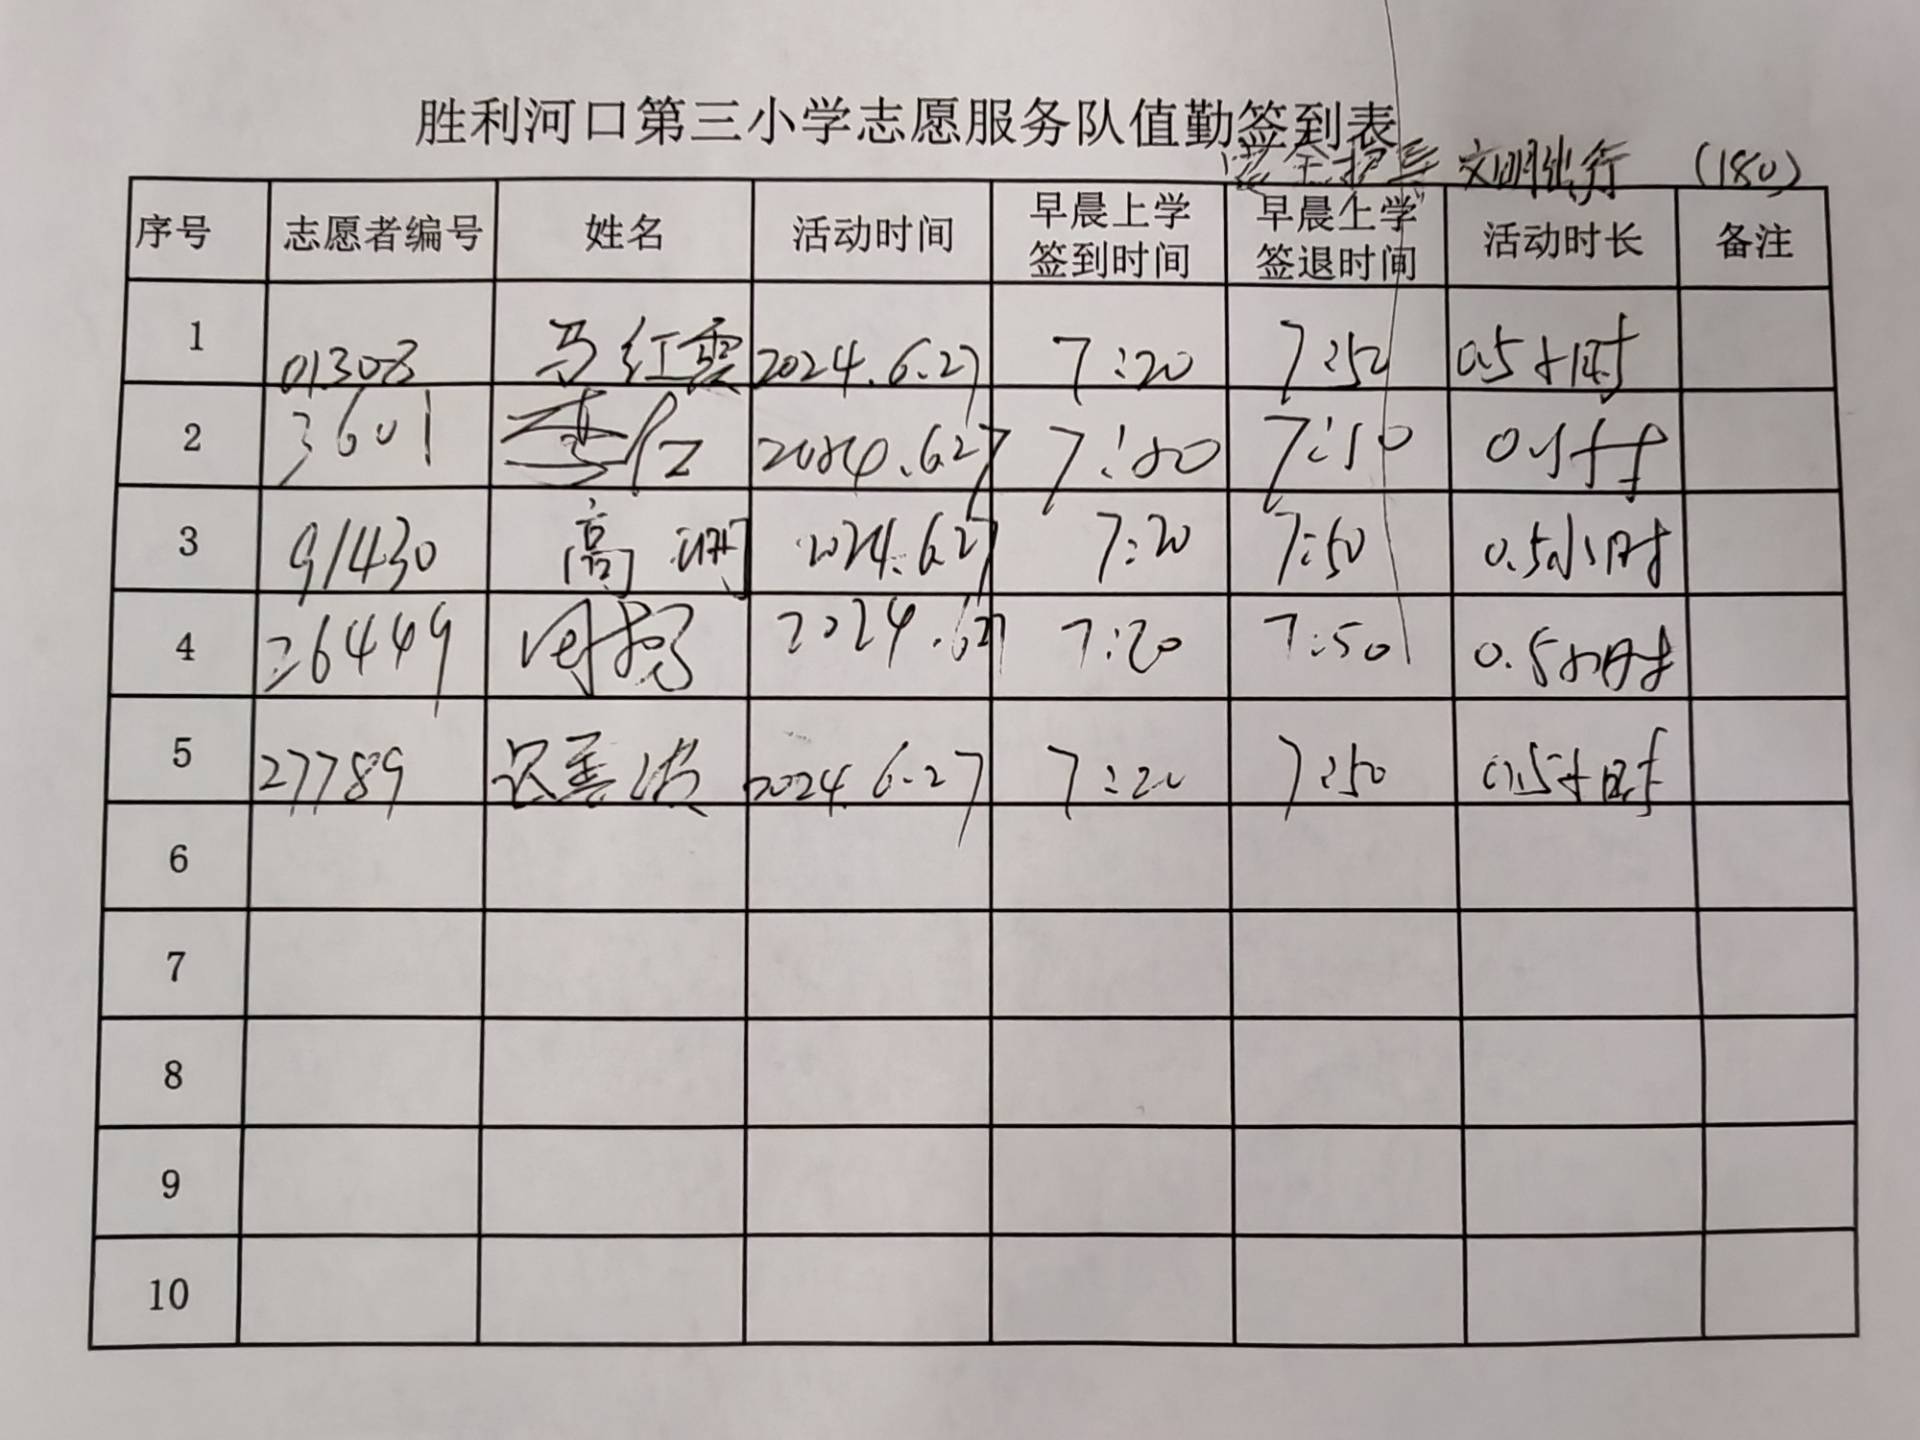 胜利河口第三小学志愿服务队值勤签到表
安全护导 文明出行 (180)
序号 志愿者编号 姓名 活动时间 早晨上学签到时间 早晨上学签退时间 活动时长 备注
1 01308 马红霞 2024.6.27 7:20 7:50 0.5小时
2 3601 李仁 2024.6.27 7:20 7:50 0.5小时
3 91430 高珊 2024.6.27 7:20 7:50 0.5小时
4 26449 周 2024.6.27 7:20 7:50 0.5小时
5 27789 2024.6.27 7:20 7:50 0.5小时
6
7
8
9
10